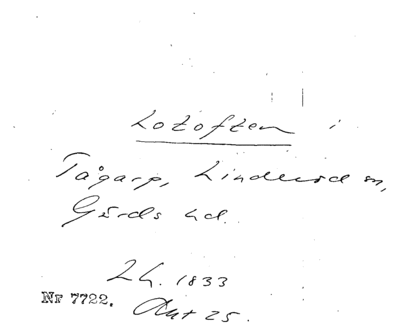 Lotoften i
Tågarp, Linderöd sn,
Gärds hd.
Lh. 1833
Nr 7722. Akt 25.